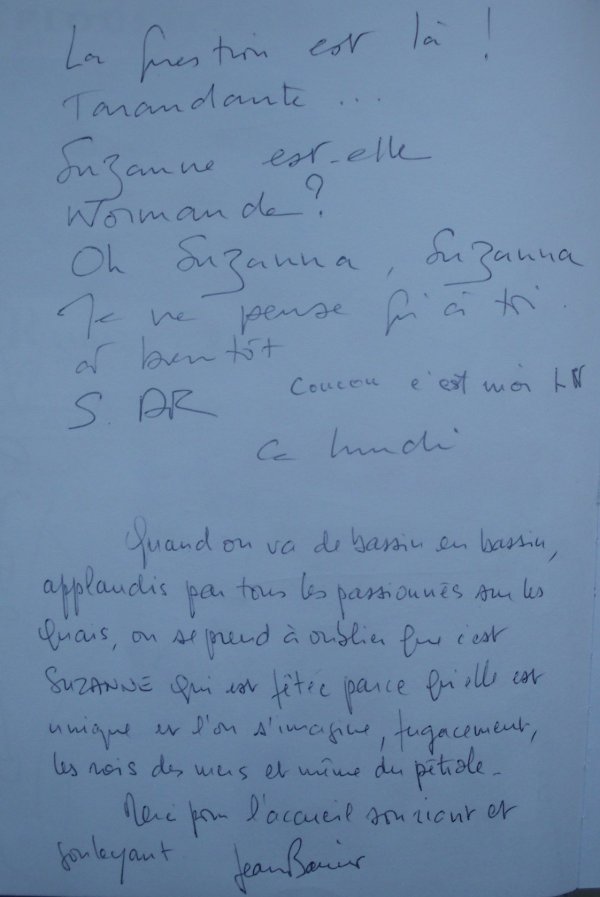 La question est là !
Tarandante ...
Suzanne est-elle
Normande ?
Oh Suzanna, Suzanna
Je ne pense qu'à toi.
à bientôt
S. AR
coucou c'est moi
Ce lundi
Quand on va de bassin en bassin,
applaudis par tous les passionnés sur les
quais, on se prend à oublier que c'est
SUZANNE qui est fêtée parce qu'elle est
unique et l'on s'imagine, fugacement,
les rois des mers et même du pétrole.
Merci pour l'accueil souriant et
Jean